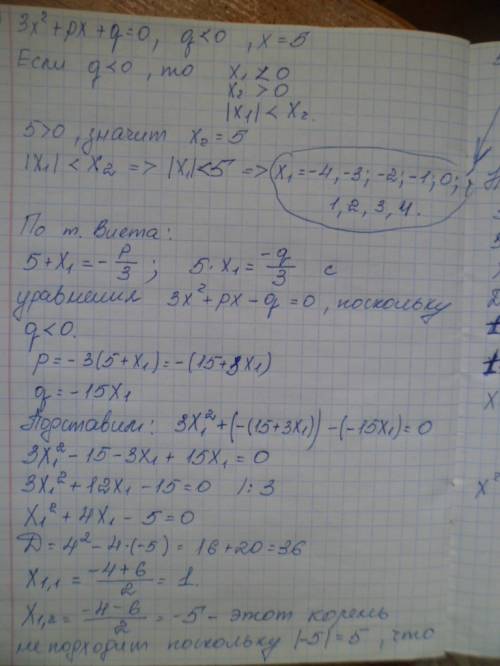 3x² + px + q = 0, q < 0, x = 5
Если q < 0, то x₁ < 0
x₂ > 0
|x₁| < x₂.
5 > 0, значит x₂ = 5
|x₁| < x₂ => |x₁| < 5 => x₁ = -4, -3; -2; -1; 0;
1, 2, 3, 4.
По т. Виета:
5 + x₁ = -p/3; 5·x₁ = -q/3 с
уравнения 3x² + px - q = 0, поскольку
q < 0.
p = -3(5 + x₁) = -(15 + 3x₁)
q = -15x₁
Подставим: 3x₁² + (-(15 + 3x₁)) - (-15x₁) = 0
3x₁² - 15 - 3x₁ + 15x₁ = 0
3x₁² + 12x₁ - 15 = 0 /: 3
x₁² + 4x₁ - 5 = 0
D = 4² - 4·(-5) = 16 + 20 = 36
x₁,₁ = (-4 + 6)/2 = 1.
x₁,₂ = (-4 - 6)/2 = -5 - этот корень
не подходит поскольку |-5| = 5, что